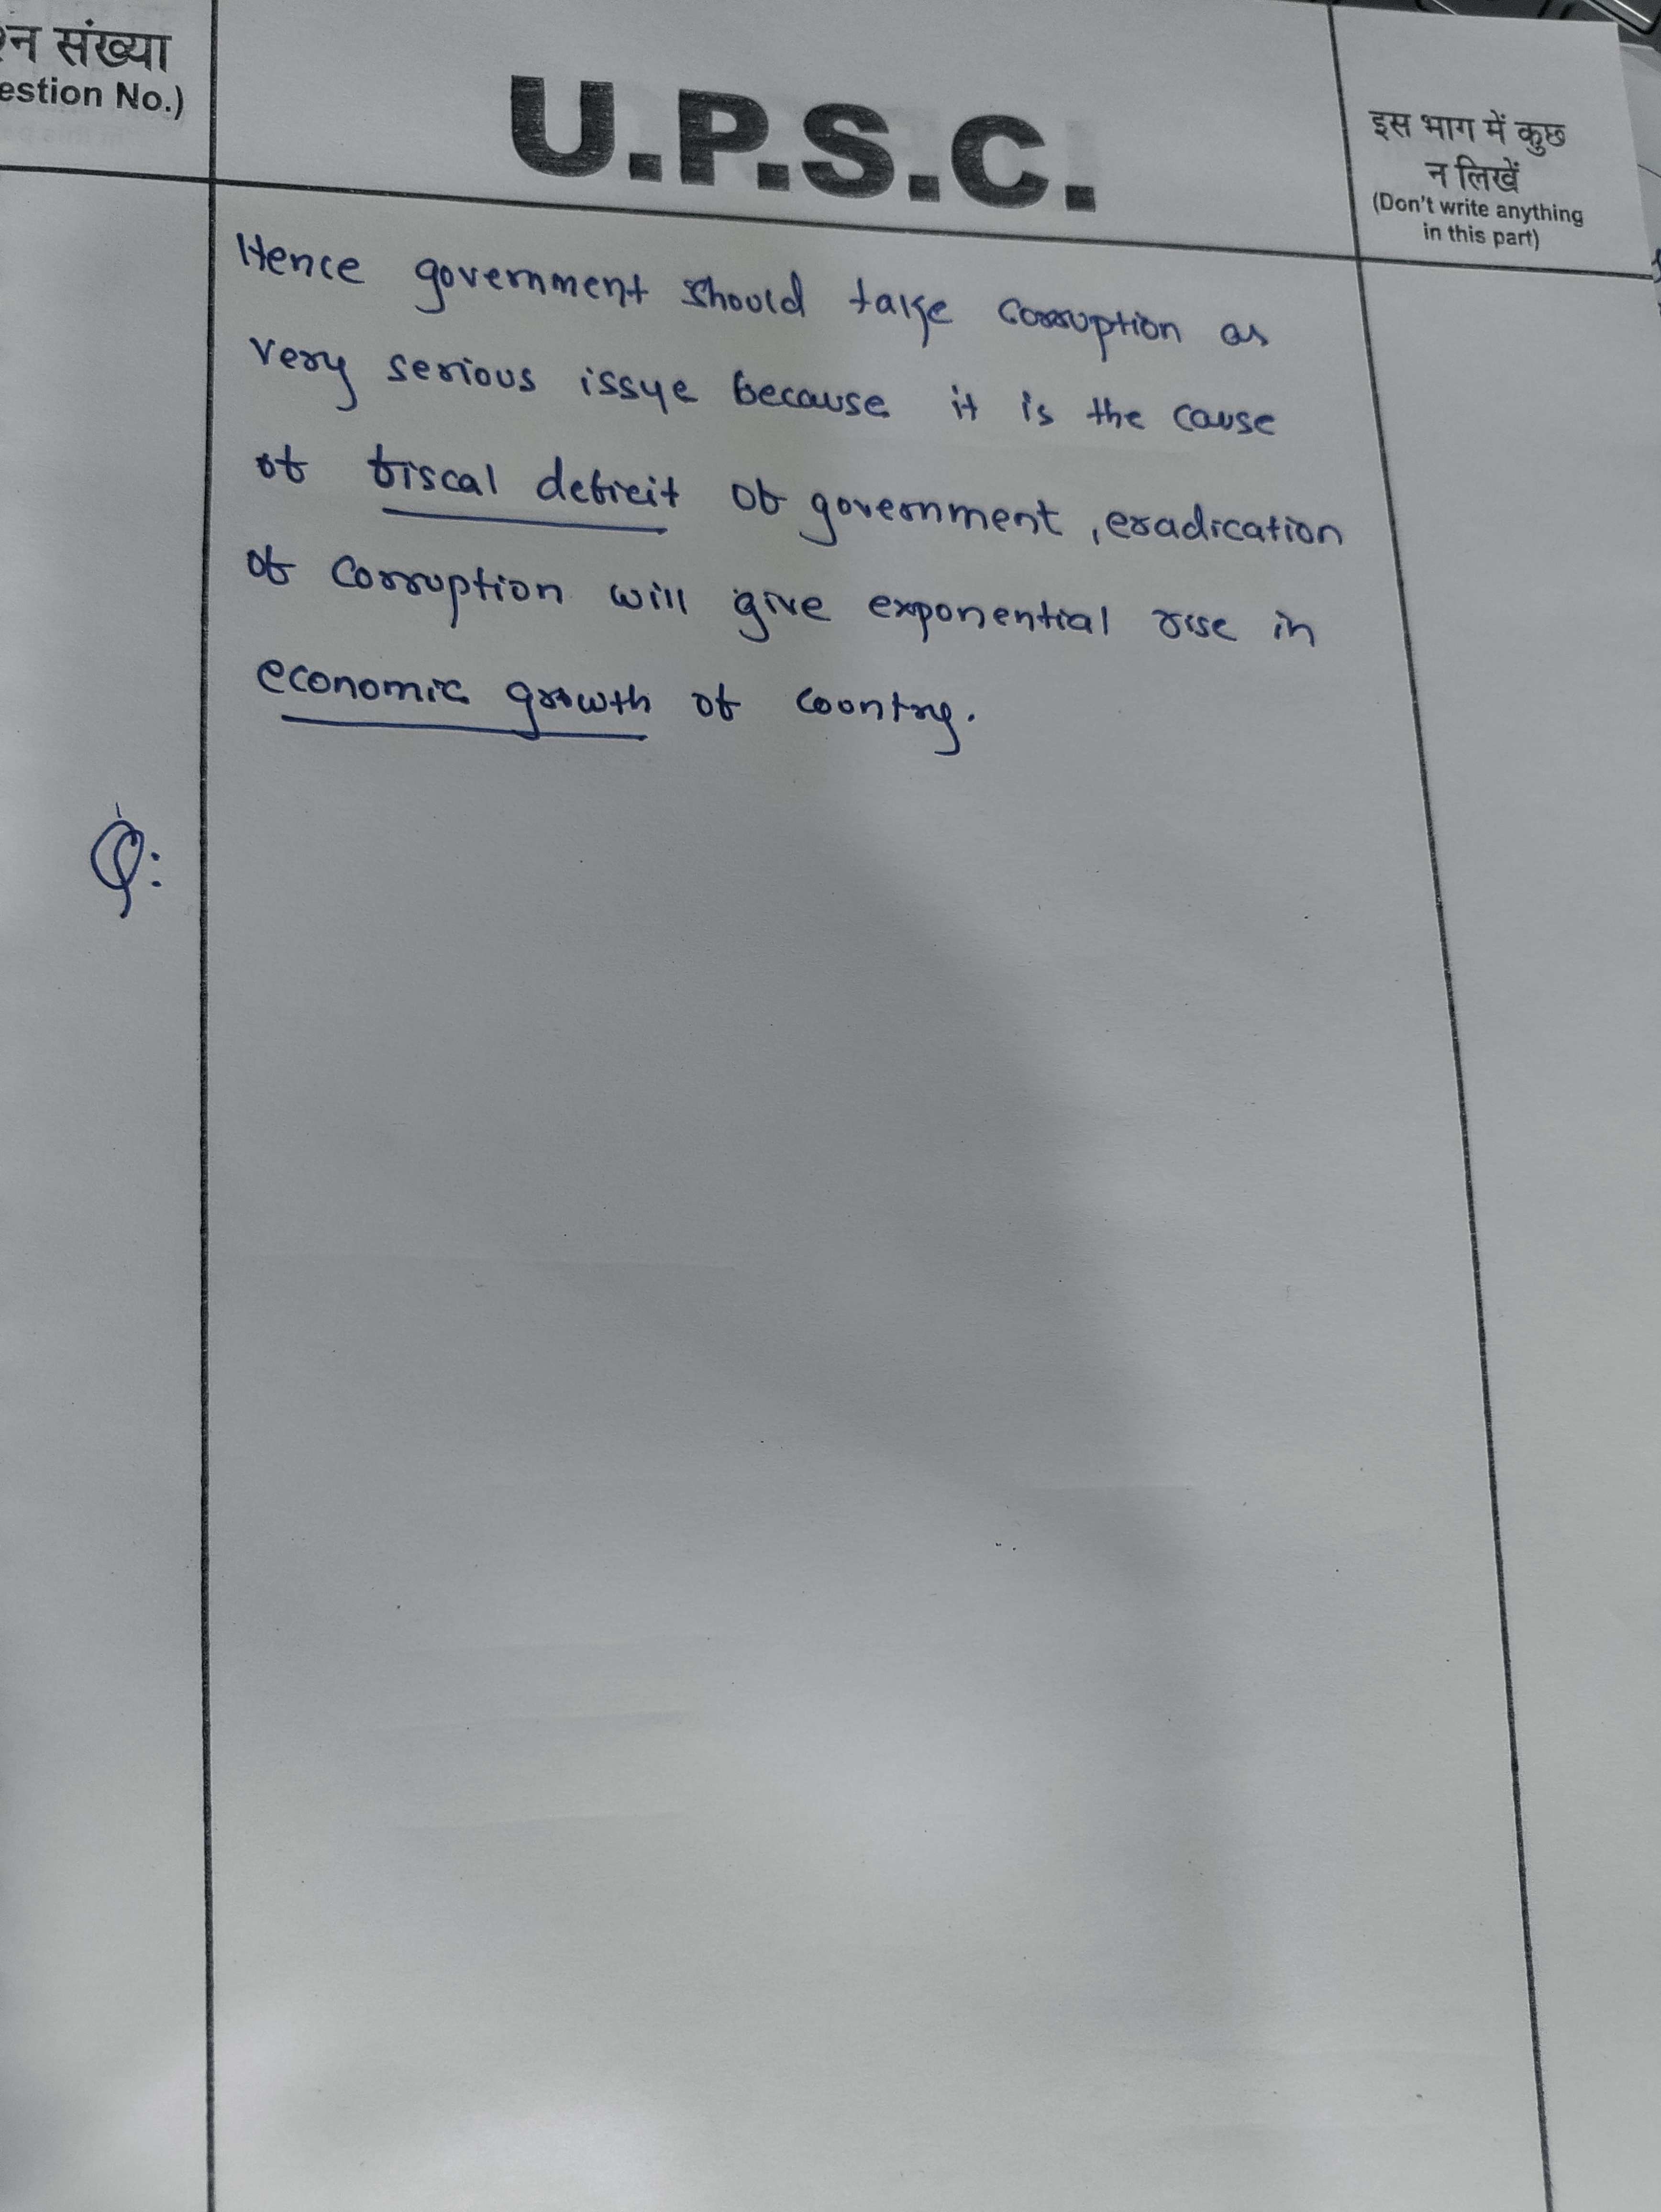 न संख्या
estion No.)
U.P.S.C.
इस भाग में कुछ
न लिखें
(Don't write anything
in this part)
Hence government should take corruption as
very serious issye because it is the cause
of fiscal deficit of government, eradication
of corruption will give exponential rise in
economic growth of country.
Q: